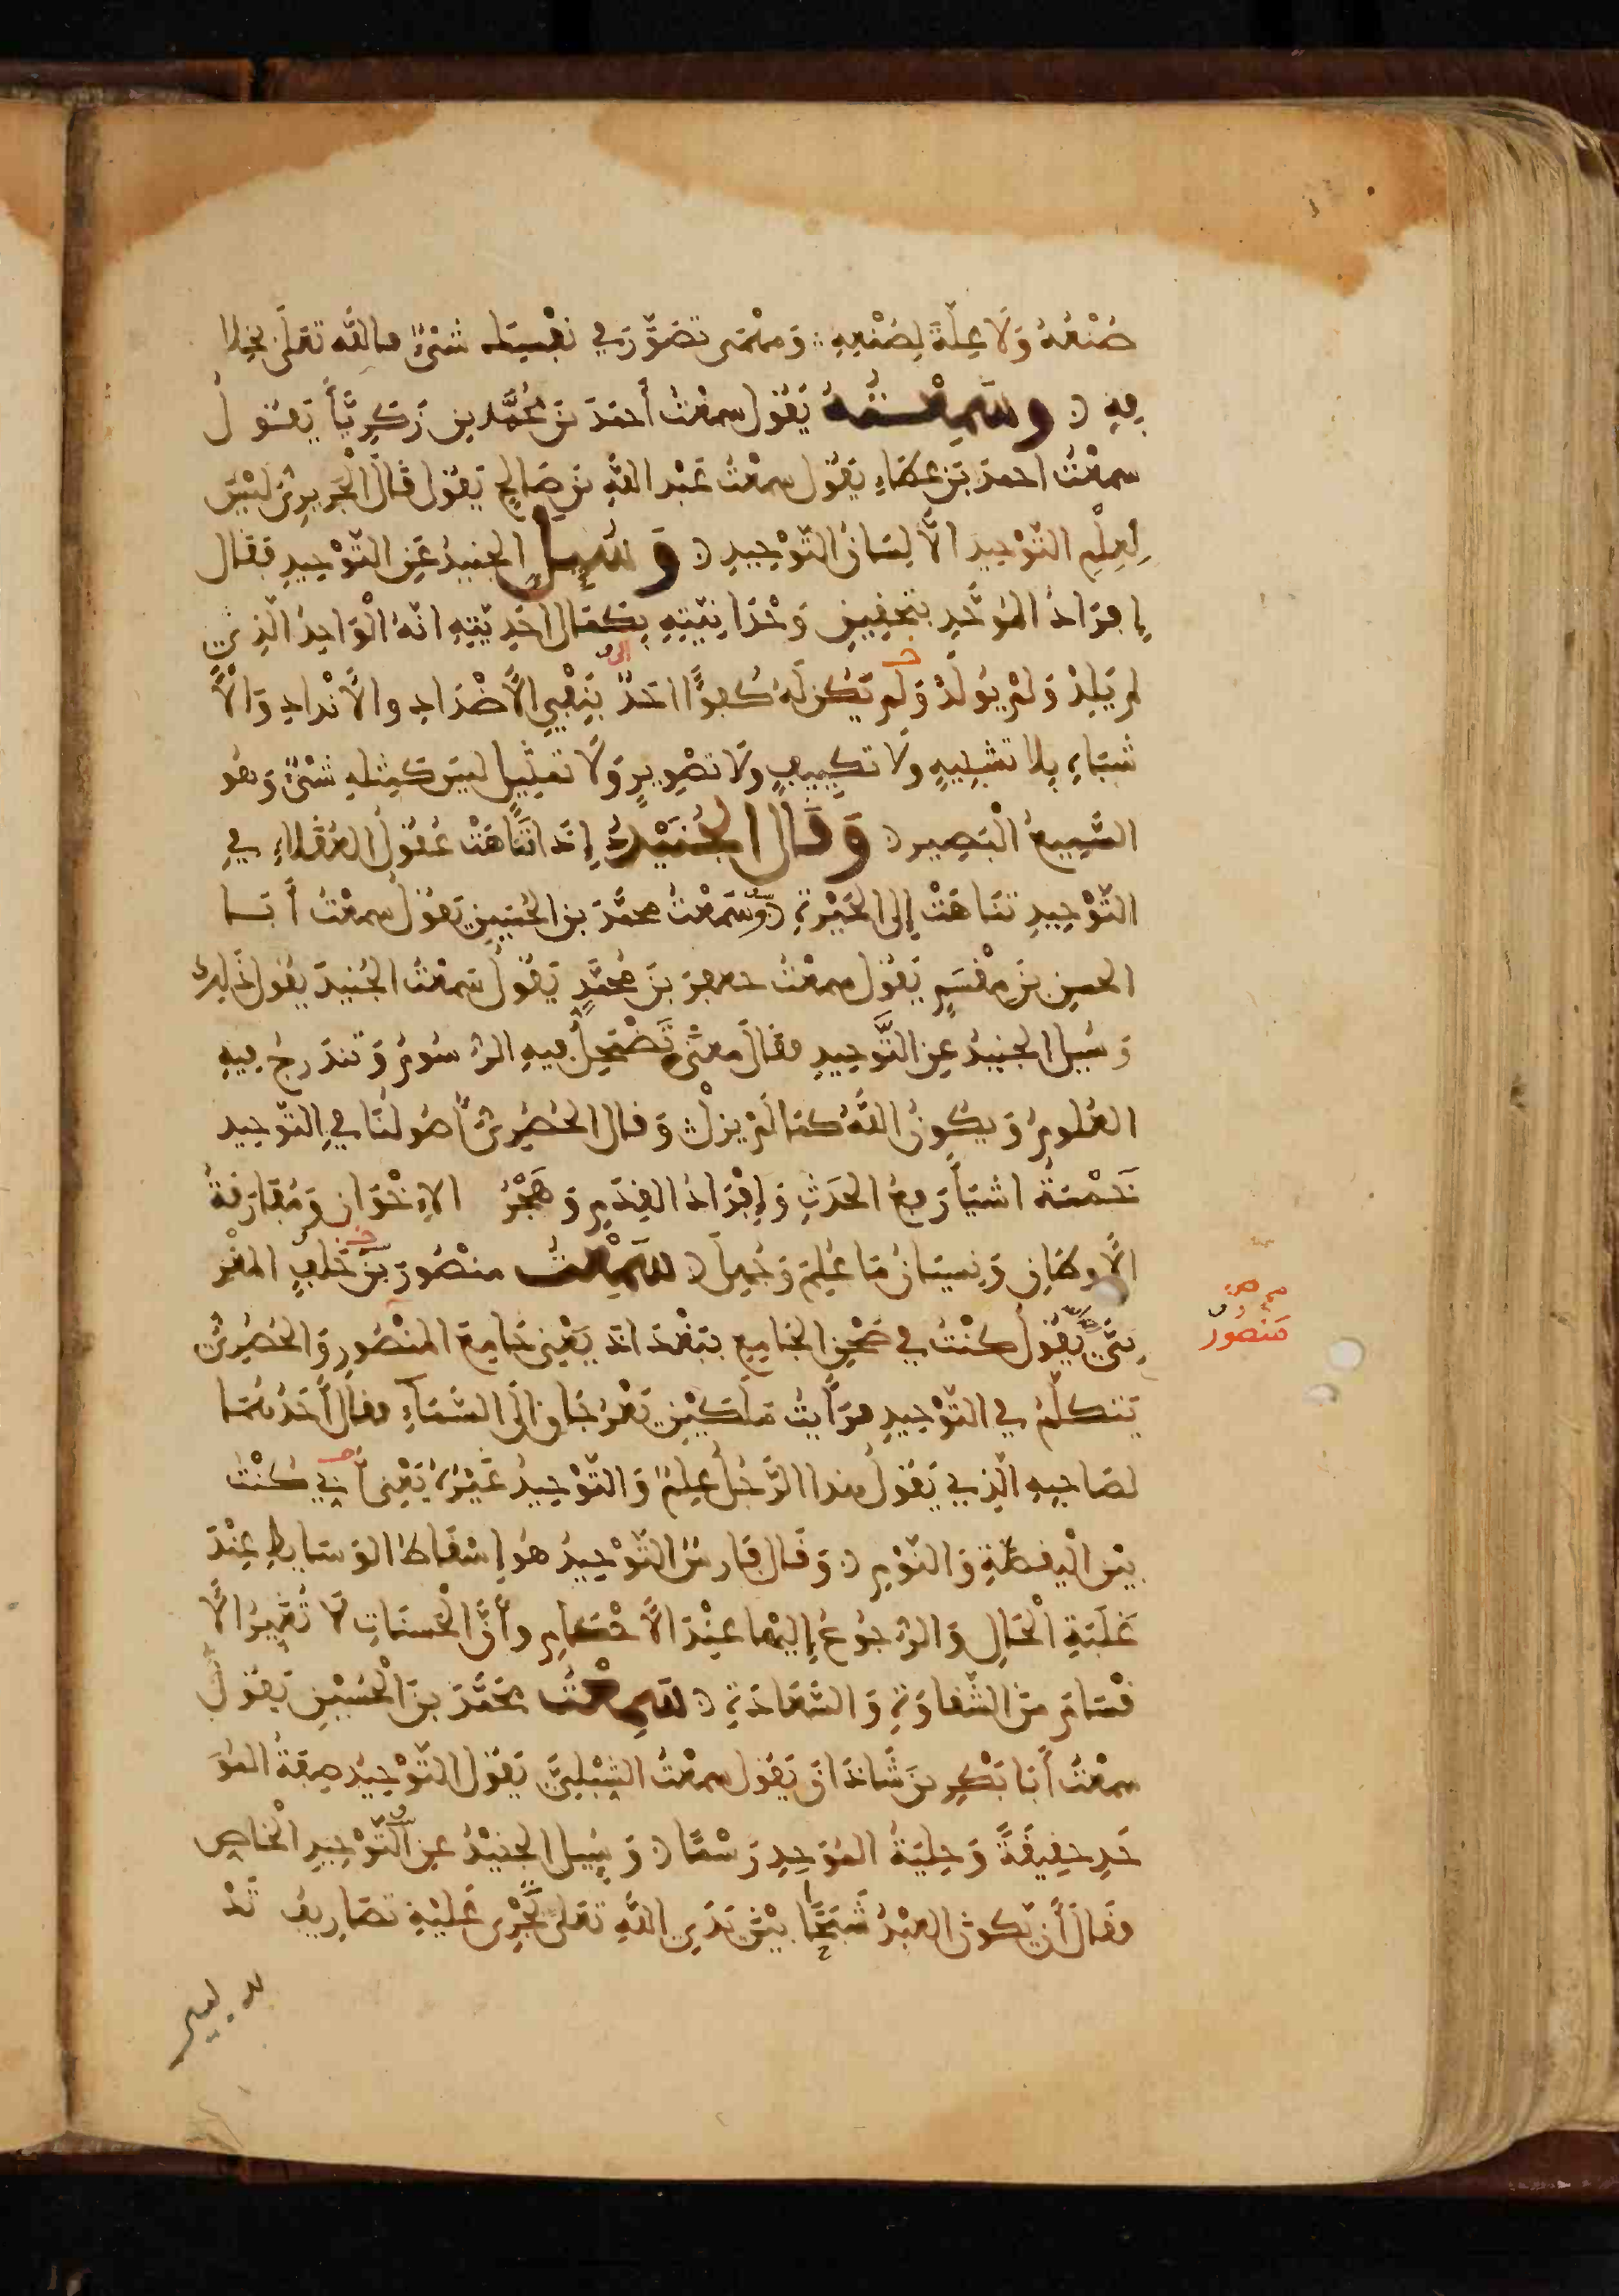 صُنْعُهُ وَلَا عِلَّةَ لِصُنْعِهِ وَمهْمَى تصَوَّرَ في نفْسِكَ شَىْءٌ فاللّه تعلَى بخلا
فِهِ وسَمِعْتُهُ يَقُول سمعْتُ أحمَدَ بنَ مُحمَّد بن زَكرِيَّآ يَقول
سمعْتُ احمدَ بنَ عَطَاءٍ يَقُول سمعْتُ عَبْد اللّهِ بنَ صَالِحٍ يَقول قَالَ الْجُرَيرِيُّ لَيْسَ
لِعِلْمِ التّوْحِيدِ الَّا لِسَانُ التّوْحِيدِ وَسُئِلَ الجنيدُ عَنِ التّوْحِيدِ فقال
إِفرَادُ المُوَحَّدِ بتحْقِيقِ وَحْدَانِيَّتِهِ بِكَمَال احَدِيَّتِهِ انّهُ الْوَاحِدُ الّذِى
لم يَلِدْ وَلمْ يُولَدْ وَلم يَكُن لَهُ كُفوًا احَدٌ بِنَفْيِ الَاضْدَادِ والَانْدَادِ وَالَا
شْبَاهِ بِلا تشْبِيهٍ ولَا تكيِيفٍ ولَا تصْوِيرٍ وَلَا تمْثِيلٍ ليسَ كَمِثلِهِ شَىْءٌ وَهُوَ
السَّمِيعُ الْبَصِير وَقَال الجُنَيْدُ إِذَا تَنَاهَتْ عُقُولُ العُقَلاءِ في
التّوْحِيدِ تنَاهَتْ إلى الحَيْرةِ وسَمِعْتُ محمَّدَ بن الحُسَيِن يَقول سمعْتُ أبَا
الحسين بنَ مِقْسَمٍ يَقول سمعْتُ جعفرَ بنَ محمَّدٍ يَقُول سَمعْتُ الجُنيدَ يقُول ذَلِكَ
وَسُئِل الجنيدُ عن التَّوحيدِ فقالَ معْنًى تَضْمَحِلُّ فيهِ الرُّسُومُ وَتندَرِجُ فِيهِ
العُلُومُ وَيكُونُ اللّهُ كمَا لَمْ يَزلْ وَقال الحُصْرِىُّ أُصُولنَا في التّوْحِيد
خَمْسَةُ اشيَآءَ رفعُ الحَدَثِ وَإِفْرَادُ القِدَمِ وَهَجْرُ الاخْوَانِ وَمُفَارَقةُ
الَاوطَانِ وَنِسْيَانُ مَا عُلِمَ وَجُهِلَ سَمِعْتُ منْصُورَ بنَ خَلَفٍ المغْرِ
بيَّ يَقُول كنْتُ في صَحْنِ الجَامِعِ ببَغْدَادَ يَعْنى جَامِعَ المنْصُورِ وَالحُصْرِىُّ
يَتكلّمُ في التّوْحِيدِ فرَأيتُ مَلَكَيْنِ يَعْرُجَانِ الَى السَّمَآءِ فقال أحَدُهُمَا
لصَاحِبِهِ الّذِي يَقُول هذا الرَّجُل عِلمُ التّوْحِيدُ غَيْرُهُ يَعْنى أنِّي كُنْتُ
بيْنَ الْيقظَةِ وَالنّوْمِ وَقَال فَارسٌ التّوْحِيدُ هُو إِسْقاطُ الوَسَايطِ عِنْدَ
غَلَبَةِ الْحَالِ وَالرُّجُوعُ إليْهَا عِنْدَ الَاحْكَامِ وأنَّ الْحَسَنَاتِ لَا تُغَيِّرُ الَا
قْسَامَ مِنَ الشَّقَاوَةِ وَالسَّعَادَةِ سَمِعْتُ محَمَّدَ بنَ الْحُسَيْنِ يَقُولُ
سمعْتُ أَبَا بَكْرِ بنَ شَاذَانَ يَقُول سمعْتُ الشِبْلِيَّ يَقُول التّوْحِيدُ صِفَةُ المُوَ
حِّدِ حقِيقَةً وَحِلْيَةُ المُوَحِّدِ رَسْمًا وَسُئِل الجنَيْدُ عن التّوْحِيدِ الْخاصِ
فقَالَ أن يَّكونَ العَبْدُ شَبَحًا بيْنَ يَدَىِ اللّهِ تعَلى تَجْرِى عَلَيْهِ تصَارِيفُ تَدْ
منصور